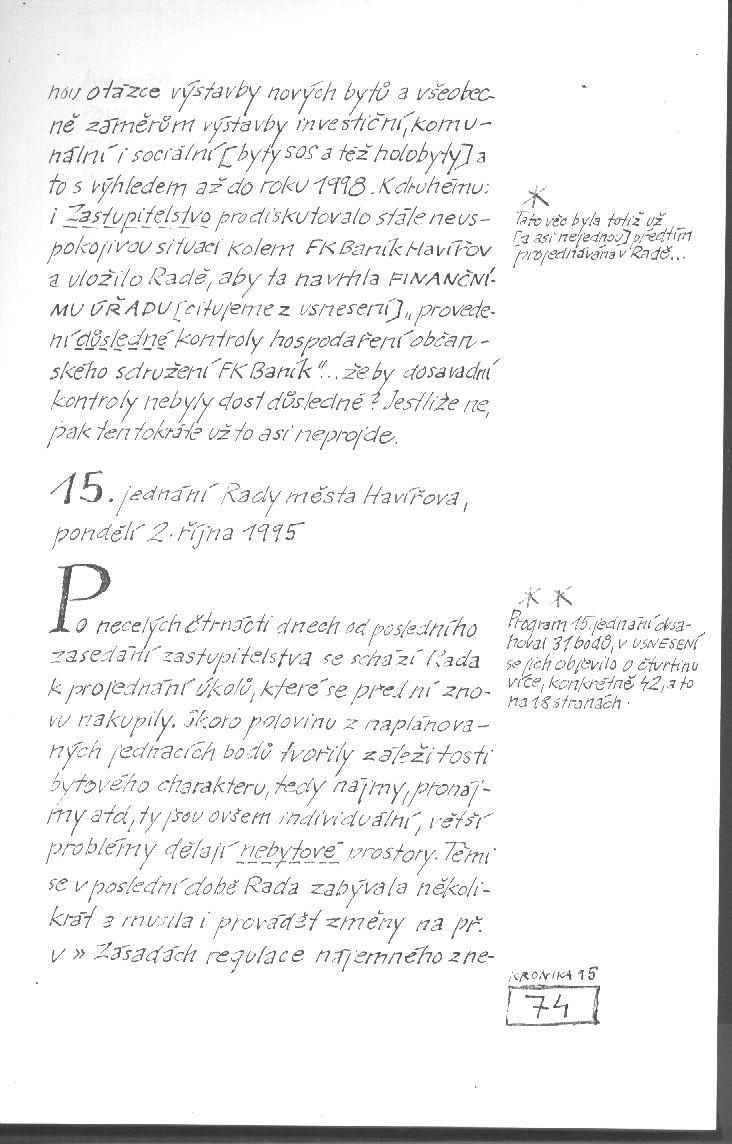 nou otázce výstavby nových bytů a všeobec-
ně záměrům výstavby investiční, komu-
nální i sociální [byty SOS a též holobyty] a
to s výhledem až do roku 1998. K druhému:
i Zastupitelstvo prodiskutovalo stále neus-
pokojivou situaci kolem FK Baník Havířov
a uložilo Radě, aby ta navrhla FINANČNÍ-
MU ÚŘADU [citujeme z usnesení] „provede-
ní důsledné kontroly hospodaření občan-
ského sdružení FK Baník"... že by dosavadní
kontroly nebyly dost důsledné? Jestliže ne,
pak tentokráte už to asi neprojde.
*
Tato věc byla totiž už
[a asi nejednou] předtím
projednávána v Radě...
15. jednání Rady města Havířova,
pondělí 2. října 1995
Po necelých čtrnácti dnech od posledního
zasedání zastupitelstva se schází Rada
k projednání úkolů, které se před ní zno-
vu nakupily. Skoro polovinu z naplánova-
ných jednacích bodů tvořily záležitosti
bytového charakteru, tedy nájmy, pronáj-
my atd, ty jsou ovšem individuální, větší
problémy dělají nebytové prostory. Těmi
se v poslední době Rada zabývala několi-
krát a musila i provádět změny na př.
v » Zásadách regulace nájemného z ne-
* *
Program 15. jednání obsa-
hoval 31 bodů, v USNESENÍ
se jich objevilo o čtvrtinu
více, konkrétně 42, a to
na 18 stranách.
KRONIKA 15
74